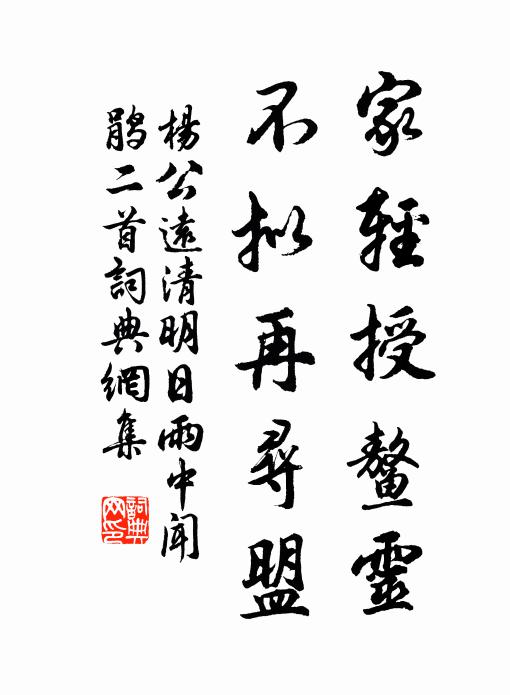 家輕授鼇靈
不拟再尋盟
楊公遠清明日雨中聞
鵑二首詞典網集
詞典
网印